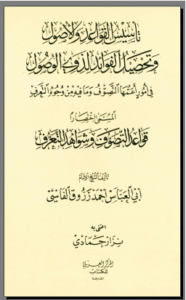 تأسيس القواعد والأصول
وتحصيل الفوائد لذوي الوصول
في أمور أعمها التصوف وما فيه من وجوه التعرف
المسمى اختصارا
قواعد التصوف وشواهد التعرف
تأليف الشيخ الإمام
أبي العباس أحمد زروق الفاسي
اعتنى به
نزار حمادي
المركز العربي
للكتاب